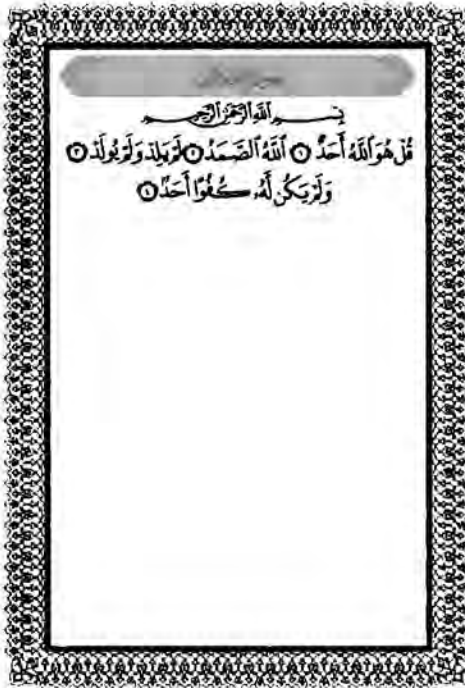 بِسْمِ ٱللَّهِ ٱلرَّحْمَٰنِ ٱلرَّحِيمِ
قُلْ هُوَ ٱللَّهُ أَحَدٌ ۝ ٱللَّهُ ٱلصَّمَدُ ۝ لَمْ يَلِدْ وَلَمْ يُولَدْ ۝
وَلَمْ يَكُن لَّهُۥ كُفُوًا أَحَدٌ ۝